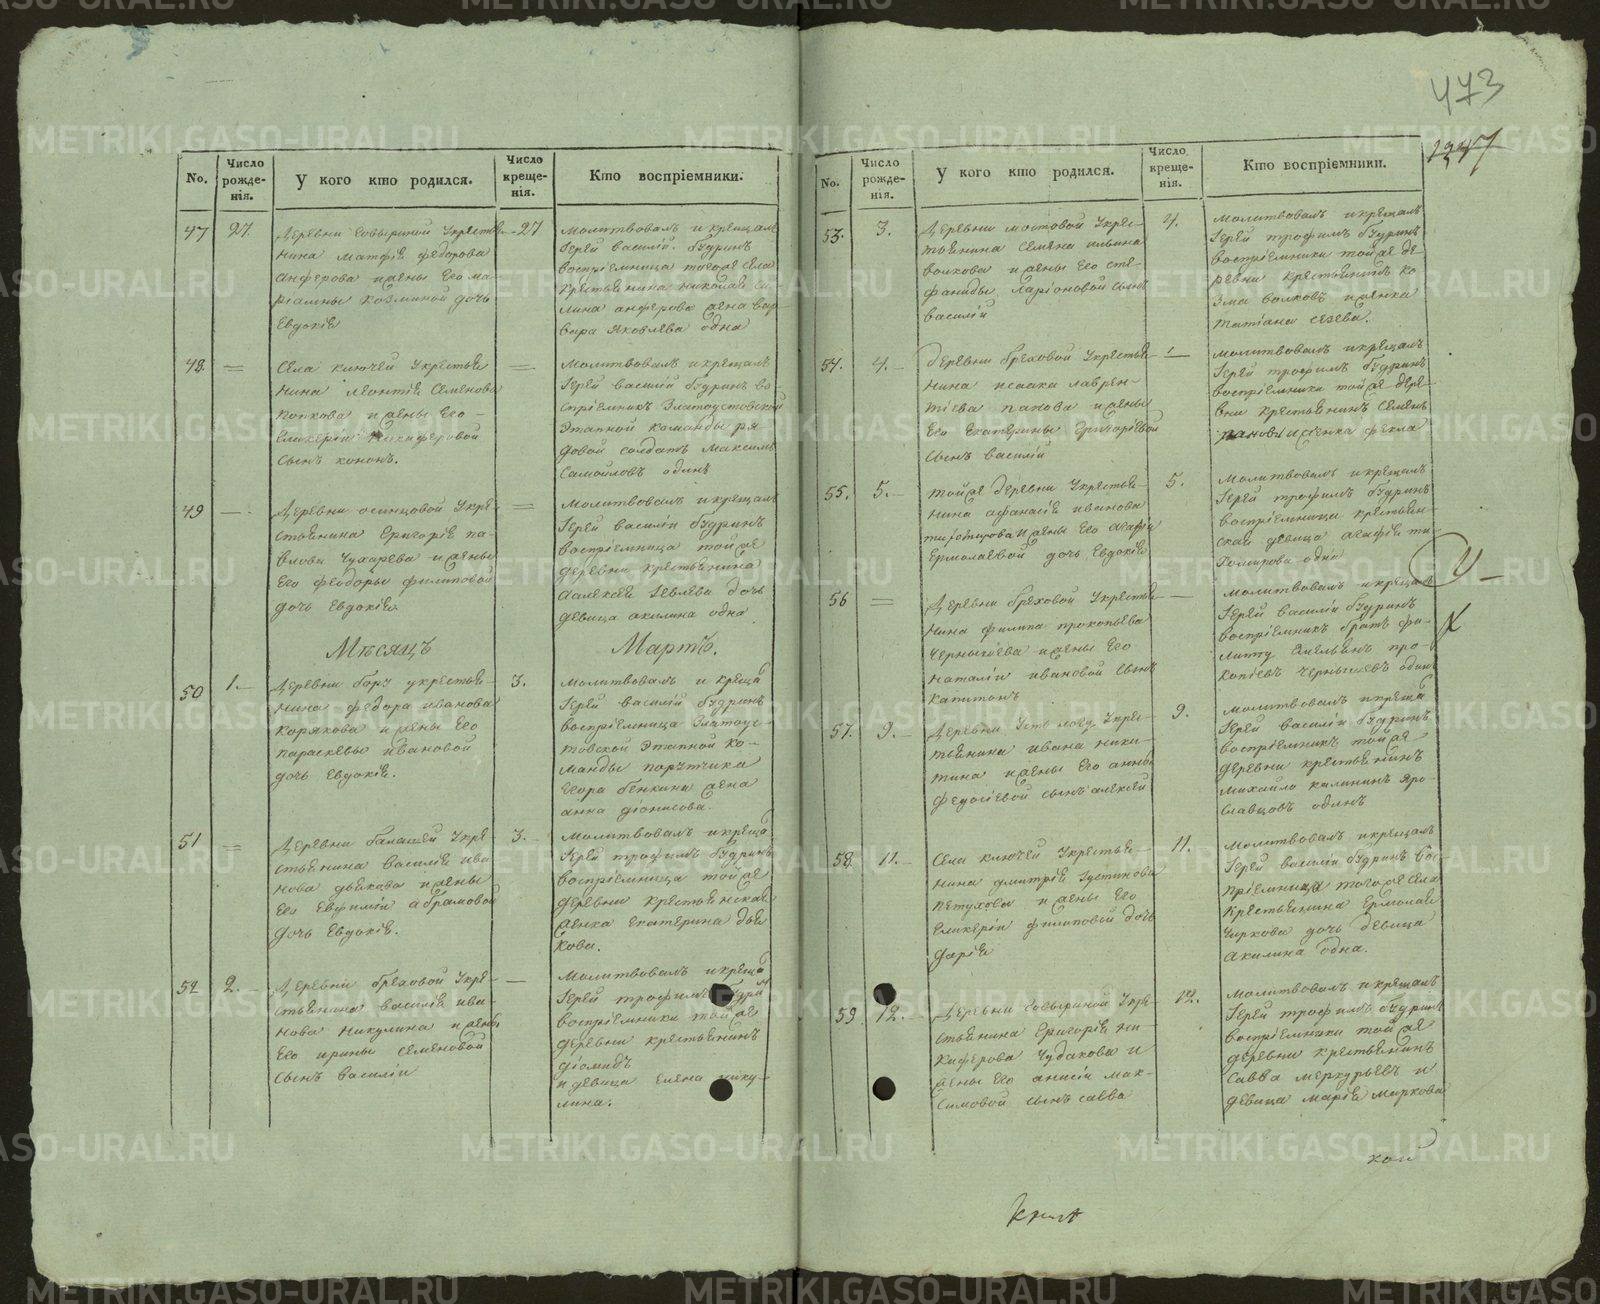 473
1247
No.
Число рожде-нія.
У кого кто родился.
Число креще-нія.
Кто воспріемники.
47
27.
Деревни Совыриной Укрестья-
нина Матфія Федорова
Анферова и жены Его Ма-
Козминой дочь
Евдокія
27
Молитвовалъ и крещалъ
Іерей Василій Будринъ
воспріемница тогоже села
крестьянина Николая Си-
лина Анферова жена Вар-
вара Яковлева одна
48.
=
Села ключей Укрестья
нина Леонтія Семенова
Попкова и жены Его
Гликеріи Никифоровой
сынъ Кононъ.
=
Молитвовалъ и крещалъ
Іерей Василій Будринъ во-
спріемникъ Златоустовской
Этапной команды ря
довой солдатъ Максимъ
Самойловъ одинъ
49
Деревни Осинцовой Укре-
стьянина Григорія Па-
влова Чухарева и жены
Его Феодоры Филиповой
дочь Евдокія
=
Молитвовалъ и крещалъ
Іерей Василій Будринъ
воспріемница тойже
деревни крестьянина
дочь
девица Акилина одна
Мѣсяцъ
Мартъ.
50
1.
Деревни Бору укрестья-
нина Федора Иванова
Корякова и жены Его
Параскевы Ивановой
дочь Евдокія.
3.
Молитвовалъ и креща
Іерей Василій Будринъ
воспріемница Златоус-
товской Этапной ко-
манды порутчика
Егора жена
Анна Діонисова.
51
=
Деревни Укре-
стьянина Василія Ива
нова Дьякова и жены
Его Евфиміи Абрамовой
дочь Евдокія.
3.
Молитвовалъ и креща
Іерей Трофимъ Будринъ
воспріемница тойже
деревни крестьянская
женка Екатерина Дья
кова.
52
2.
Деревни Бреховой Укре-
стьянина Василія Ива-
нова Никулина и жены
Его Ирины Семеновой
сынъ Василій
Молитвовалъ и креща
Іерей Трофимъ Будри
воспріемники тойже
деревни крестьянинъ
Діомидъ
и девица Елена Нику-
лина.
No.
Число рожде-нія.
У кого кто родился.
Число креще-нія.
Кто воспріемники.
53.
3.
Деревни Мостовой Укрес-
тьянина Семена Ильина
Волкова и жены Его Сте-
фаниды Ларіоновой сынъ
Василій
4.
Молитвовалъ и крещалъ
Іерей Трофимъ Будринъ
воспріемники тойже де
ревни крестьянинъ Ко
зма Волковъ и женка
Татіана
54.
4.
Деревни Бреховой Укрестья
нина Исаака Лаврен-
тіева Панова и жены
Его Екатерины Григоріевой
сынъ Василій
Молитвовалъ и крещалъ
Іерей Трофимъ Будринъ
воспріемники тойже дере-
вни крестьянинъ Семенъ
Пановъ и женка Фекла
55.
5.
Тойже деревни Укрестья-
нина Афанасія Иванова
и жены Его Агафіи
Ермолаевой дочь Евдокія
5.
Молитвовалъ и крещалъ
Іерей Трофимъ Будринъ
воспріемница крестьян-
ская девица Агафія
одна
56
=
Деревни Бреховой Укрестья
нина Филипа Прокопьева
Чернышева и жены Его
Наталіи Ивановой сынъ
Капитонъ
Молитвовалъ и крещалъ
Іерей Василій Будринъ
воспріемникъ братъ Фи-
липпу Емельянъ Про-
копіевъ Чернышевъ одинъ
57.
9.
Деревни Усть логу Укрес-
тьянина Ивана Ники-
тина и жены Его Анны
Федосіевой сынъ Алексей
9.
Молитвовалъ и креща
Іерей Василій Будринъ
воспріемникъ тойже
деревни крестьянинъ
Михайло Калининъ Яро-
славцовъ одинъ
58.
11.
Села ключей Укрестья-
нина Дмитрія Устинова
Петухова и жены Его
Гликеріи Филиповой дочь
Дарія
11.
Молитвовалъ и крещалъ
Іерей Василій Будринъ вос-
пріемница тогоже села
крестьянина Ермолая
Чиркова дочь девица
Акилина одна.
59
12.
Деревни Совыриной Укре-
стьянина Григорія Ни-
киферова Чудакова и
жены Его Анисіи Мак-
симовой сынъ Савва
12.
Молитвовалъ и крещалъ
Іерей Трофимъ Будринъ
воспріемники тойже
деревни крестьянинъ
Савва Меркурьевъ и
девица Марія Миркова
METRIKI.GASO-URAL.RU